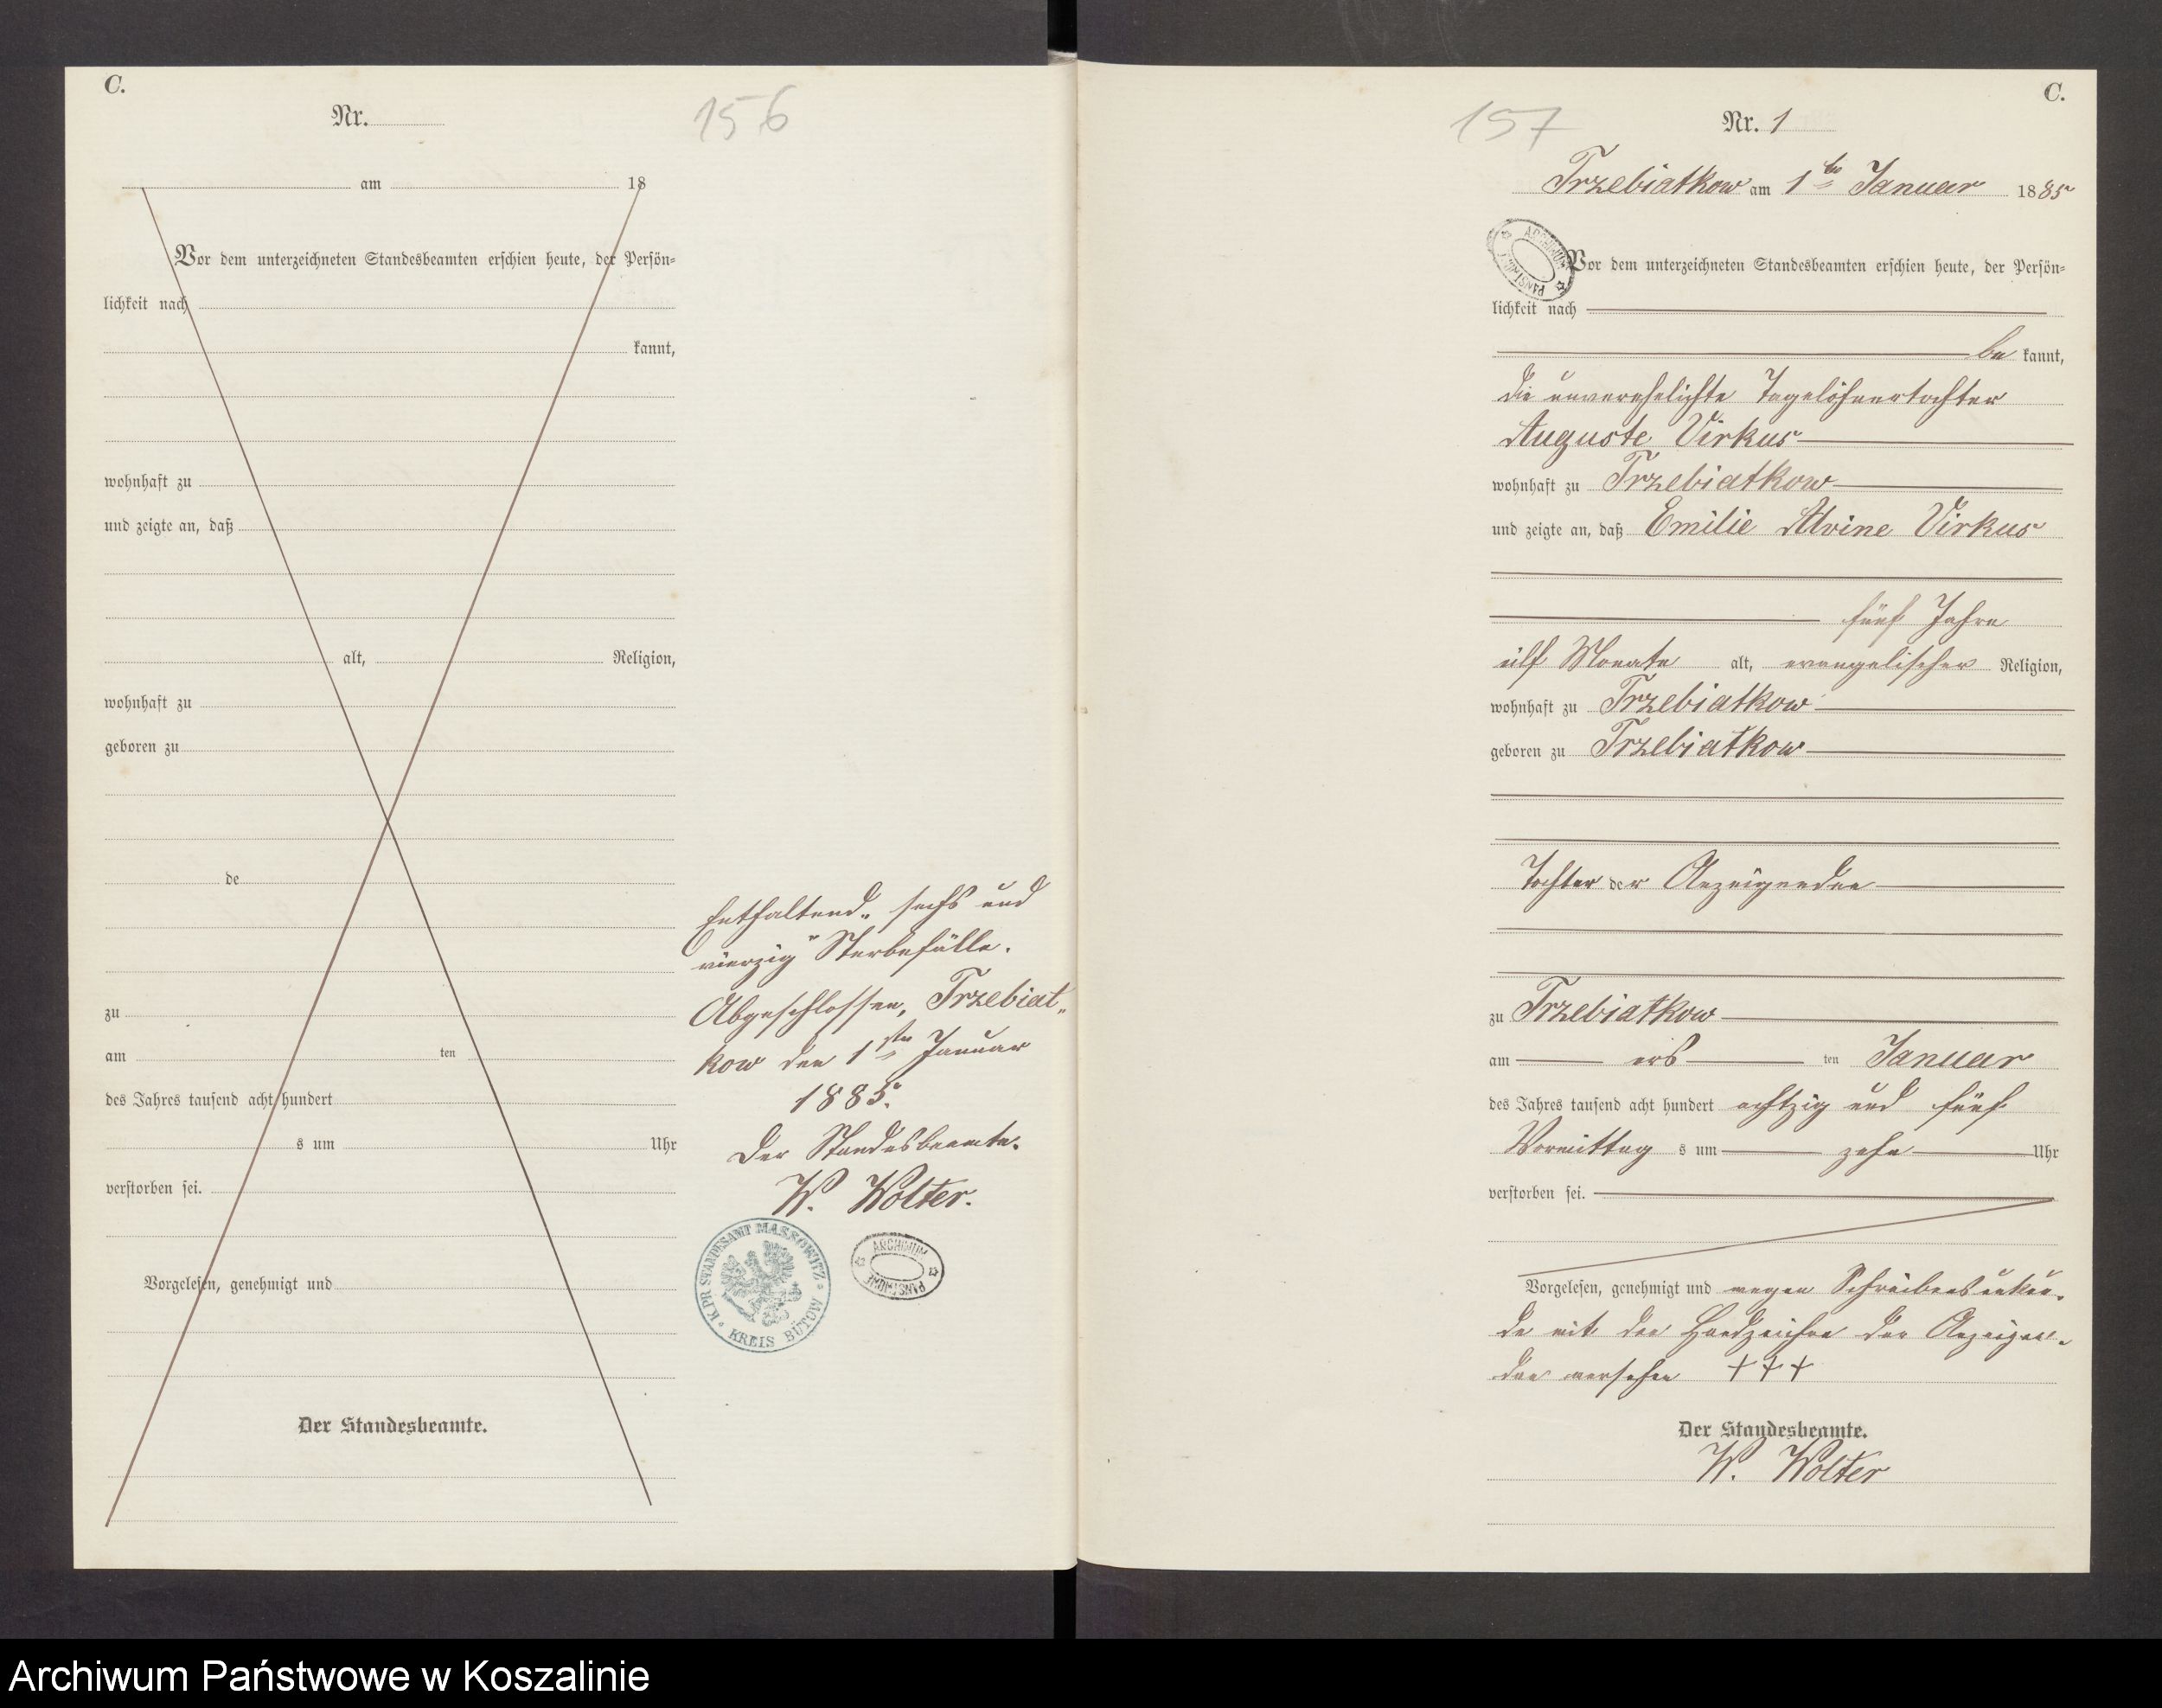 C.
Nr.
156
am 18
Vor dem unterzeichneten Standesbeamten erschien heute, der Persön-
lichkeit nach
kannt,
wohnhaft zu
und zeigte an, daß
alt, Religion,
wohnhaft zu
geboren zu
de
zu
am ten
des Jahres tausend acht hundert
s um Uhr
verstorben sei.
Vorgelesen, genehmigt und
Der Standesbeamte.
Enthaltend „sechs und
vierzig" Sterbefälle.
Abgeschlossen, Trzebiat-
kow den 1ten Januar
1885.
Der Standesbeamte.
W. Wolter.
K. PR STANDESAMT MASSOWITZ
KREIS BÜTOW
ARCHIWUM PAŃSTWOWE
C.
157
Nr. 1
Trzebiatkow am 1ten Januar 1885
ARCHIWUM PAŃSTWOWE
Vor dem unterzeichneten Standesbeamten erschien heute, der Persön-
lichkeit nach
be kannt,
die unverehelichte Tagelöhnertochter
Auguste Virkus
wohnhaft zu Trzebiatkow
und zeigte an, daß Emilie Alvine Virkus
fünf Jahre
elf Monate alt, evangelischer Religion,
wohnhaft zu Trzebiatkow
geboren zu Trzebiatkow
Tochter der Anzeigenden
zu Trzebiatkow
am ers ten Januar
des Jahres tausend acht hundert achtzig und fünf
Vormittag s um zehn Uhr
verstorben sei.
Vorgelesen, genehmigt und wegen Schreibensunkun-
de mit den Handzeichen der Anzeigen-
den versehen +++
Der Standesbeamte.
W. Wolter
Archiwum Państwowe w Koszalinie